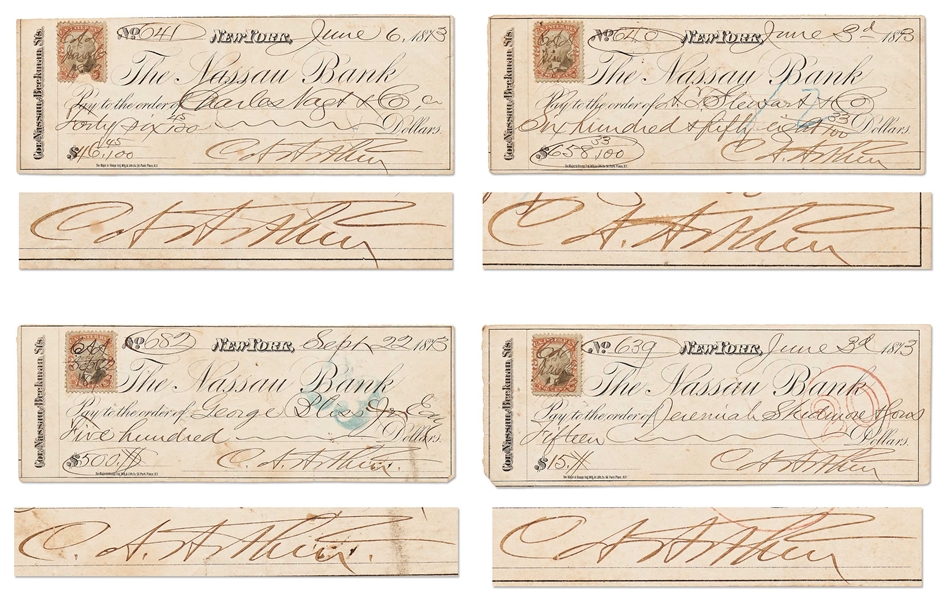 No 641 New-York, June 6, 1873
The Nassau Bank
Cor. Nassau & Beekman Sts.
Pay to the order of Charles Vagt & Co,
Forty six 45/100 Dollars.
$46,45/100 C A Arthur
C A Arthur
No 640 New-York, June 3d 1873
The Nassau Bank
Cor. Nassau & Beekman Sts.
Pay to the order of A. T. Stewart & Co
Six hundred & fifty eight 33/100 Dollars.
$658,33/100 C A Arthur
C. A. Arthur
No 682 New-York, Sept 22 1873
The Nassau Bank
Cor. Nassau & Beekman Sts.
Pay to the order of George Bliss Jr Esq
Five hundred Dollars.
$500 C. A. Arthur.
C. A. Arthur.
No 639 New-York, June 3d 1873
The Nassau Bank
Cor. Nassau & Beekman Sts.
Pay to the order of Jeremiah Skidmore & Sons
Fifteen Dollars.
$15. C A Arthur
C A Arthur